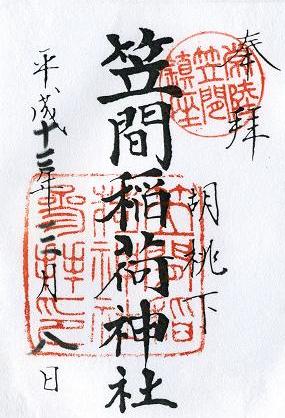 奉拝
常陸
笠間
鎮座
胡桃下
笠間稲荷神社
平成十年月八日
笠間稲
荷神社